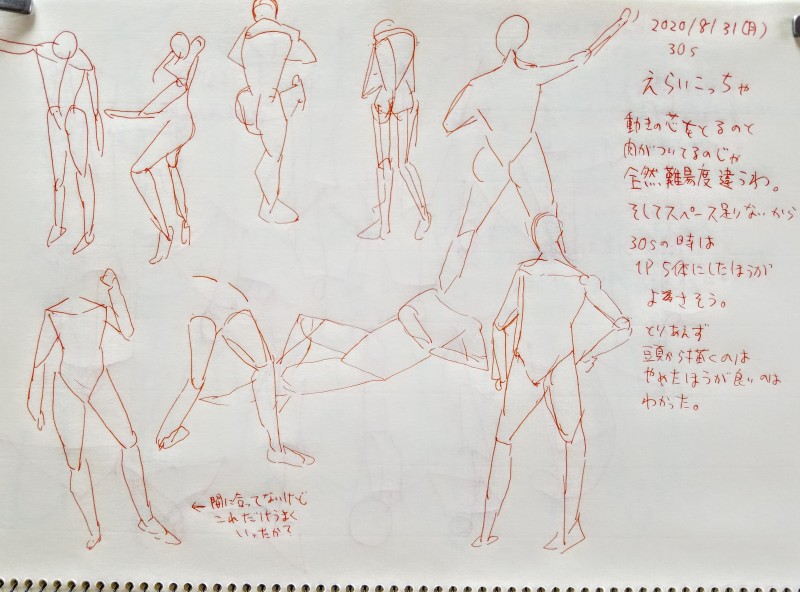 2020/8/31(月)
30s
えらいこっちゃ
動きの芯をとるのと
肉がついてるのじゃ
全然難易度違うわ。
そしてスペース足りないから
30sの時は
1P 5体にしたほうが
よさそう。
とりあえず
頭から描くのは
やめたほうが良いのは
わかった。
← 間に合ってないけど
これだけうまく
いったかも